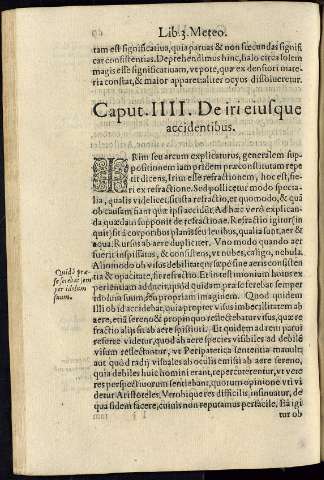 Lib. 3. Meteo.
tam est significatiua, quia paruas & non fœcundas signifi
cat consistentias. Deprehendimus hinc, halo circa solem
magis esse significatiuam, vtpote, quæ ex densiori mate
ria constat, & maior apparet aliter ocyus dissolueretur.
Caput. IIII. De iri eiusque
accidentibus.
IRim seu arcum explicaturus, generalem sup
positionem iam pridem præconstitutam repe
tit dicens, Irim esse refractionem, hoc est, fie
ri ex refractione. Sed pollicetur modo specia
lia, qualis videlicet, sit ista refractio, et quomodo, & quā
ob causam fiant quæ ipsi accidūt. Ad hæc verò explican
da quædam supponit de refractione. Refractio igitur in
quit, fit à corporibus planis seu leuibus, qualia sunt, aer &
aqua. Rursus ab aere dupliciter. Vno modo quando aer
fuerit inspissatus, & consistens, vt nubes, caligo, nebula.
Alio modo ob visus debilitatē supplēsine aeris consisten
tia & opacitate, fit refractio. Et in testimonium huius ex
perientiam adducit, quòd quidam præ se ferebat semper
idolum suum seu propriam imaginem. Quod quidem
illi ob id accidebat, quia propter visus imbecilitatem ab
aere, etiā sereno & propinquo reflectebatur visus, quæ re
fractio alijs fit ab aere spissiori. Et quidem ad rem parui
referre videtur, quod ab aere species visibiles ad debilē
visum reflectantur, vt Peripatetica sententia manult:
aut quòd radij visuales ab oculis emissi ab aere sereno,
quia debiles huic homini erant, repercuterentur, vt vero
res perspectiuorum sentiebant, quorum opinione vti vi
detur Aristoteles. Verùm quia res difficilis, insinuatur, de
qua fidem facere, cuiuis non reputamus perfacile. Ea igi
tur ob
Quidā præ
se ferebat sem
per idolum
suum.